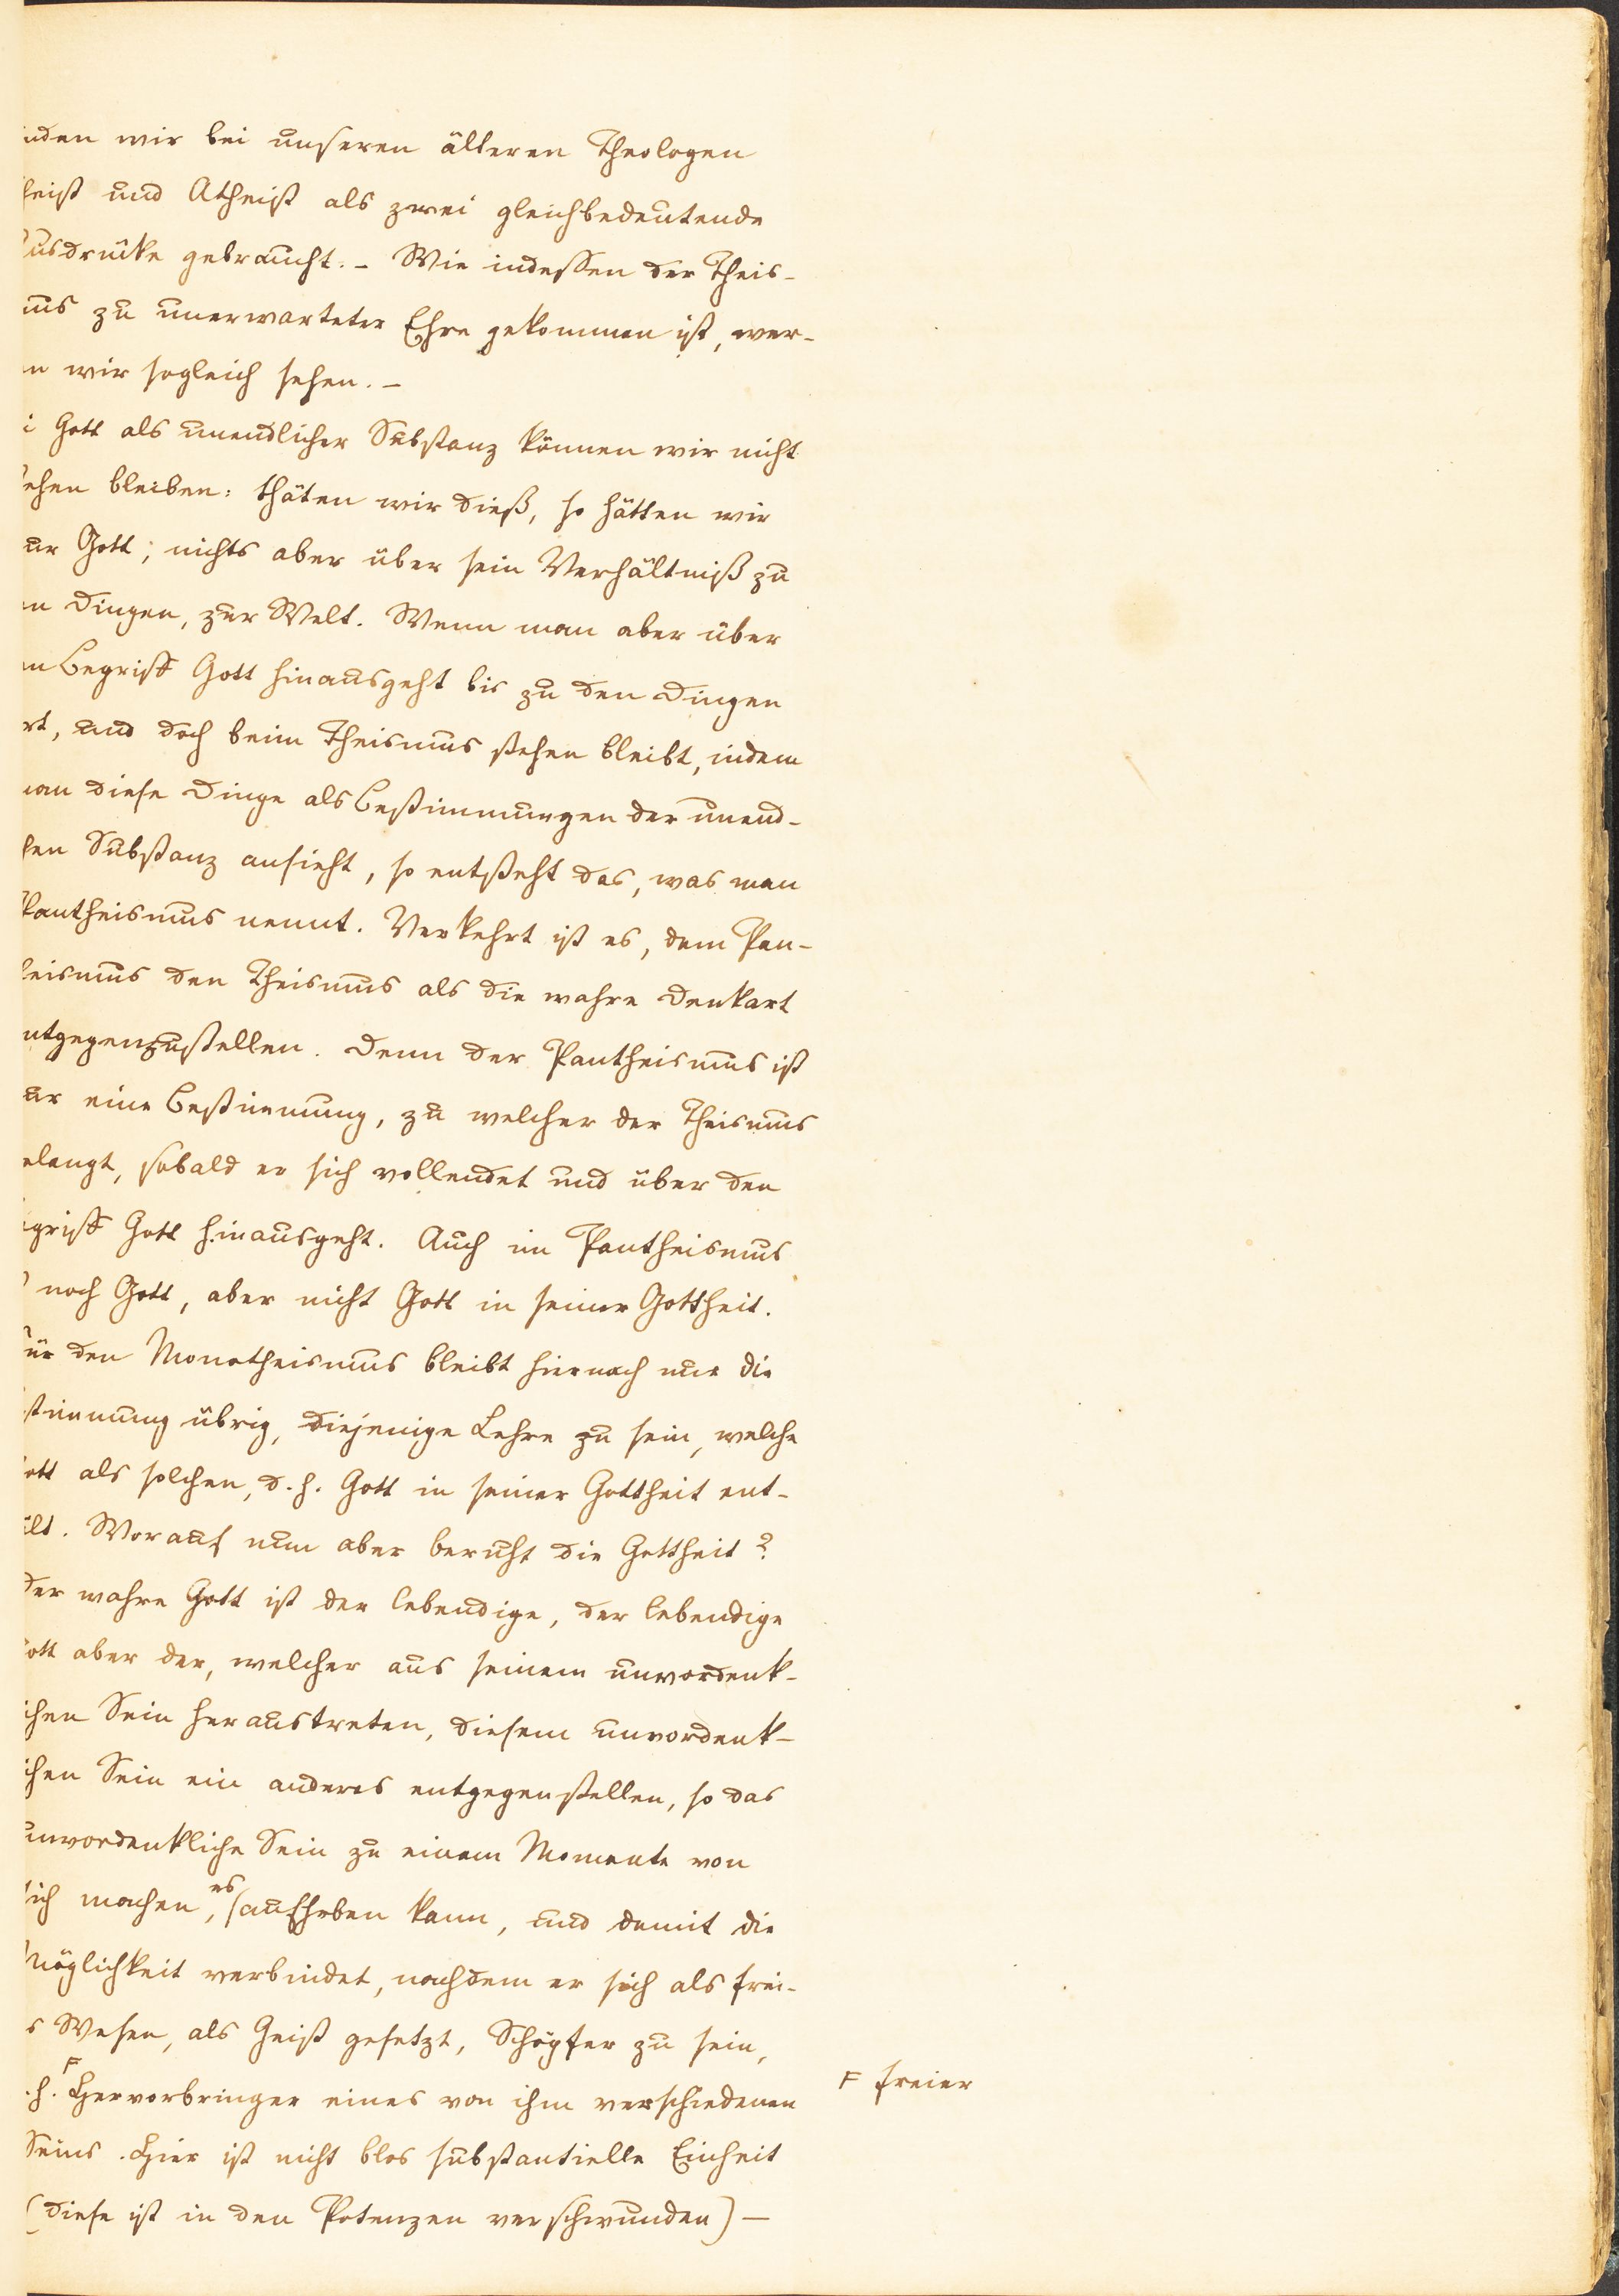 nden wir bei unseren älteren Theologen
heist und Atheist als zwei gleichbedeutende
usdrücke gebraucht. – Wie indessen der Theis-
us zu unerwarteter Ehre gekommen ist, wer-
n wir sogleich sehen. –
i Gott als unendlicher Substanz können wir nicht
ehen bleiben: thäten wir dieß, so hätten wir
ur Gott; nichts aber über sein Verhältniß zu
n Dingen, zur Welt. Wenn man aber über
n Begriff Gott hinausgeht bis zu den Dingen
rt, und doch beim Theismus stehen bleibt, indem
an diese Dinge als Bestimmungen der unend-
hen Substanz ansieht, so entsteht das, was man
Pantheismus nennt. Verkehrt ist es, dem Pan-
heismus den Theismus als die wahre Denkart
ntgegenzustellen. Denn der Pantheismus ist
ur eine Bestimmung, zu welcher der Theismus
elangt, sobald er sich vollendet und über den
griff Gott hinausgeht. Auch im Pantheismus
noch Gott, aber nicht Gott in seiner Gottheit.
ür den Monotheismus bleibt hiernach nur die
stimmung übrig, diejenige Lehre zu sein, welche
ott als solchen, d. h. Gott in seiner Gottheit ent-
ält. Worauf nun aber beruht die Gottheit?
Der wahre Gott ist der lebendige, der lebendige
ott aber der, welcher aus seinem unvordenk-
chen Sein heraustreten, diesem unvordenk-
chen Sein ein anderes entgegenstellen, so das
unvordenkliche Sein zu einem Momente von
sich machen, es aufheben kann, und damit die
Möglichkeit verbindet, nachdem er sich als frei-
s Wesen, als Geist gesetzt, Schöpfer zu sein,
. h. F Hervorbringer eines von ihm verschiedenen
F freier
Seins. Hier ist nicht blos substantielle Einheit
(diese ist in den Potenzen verschwunden) –